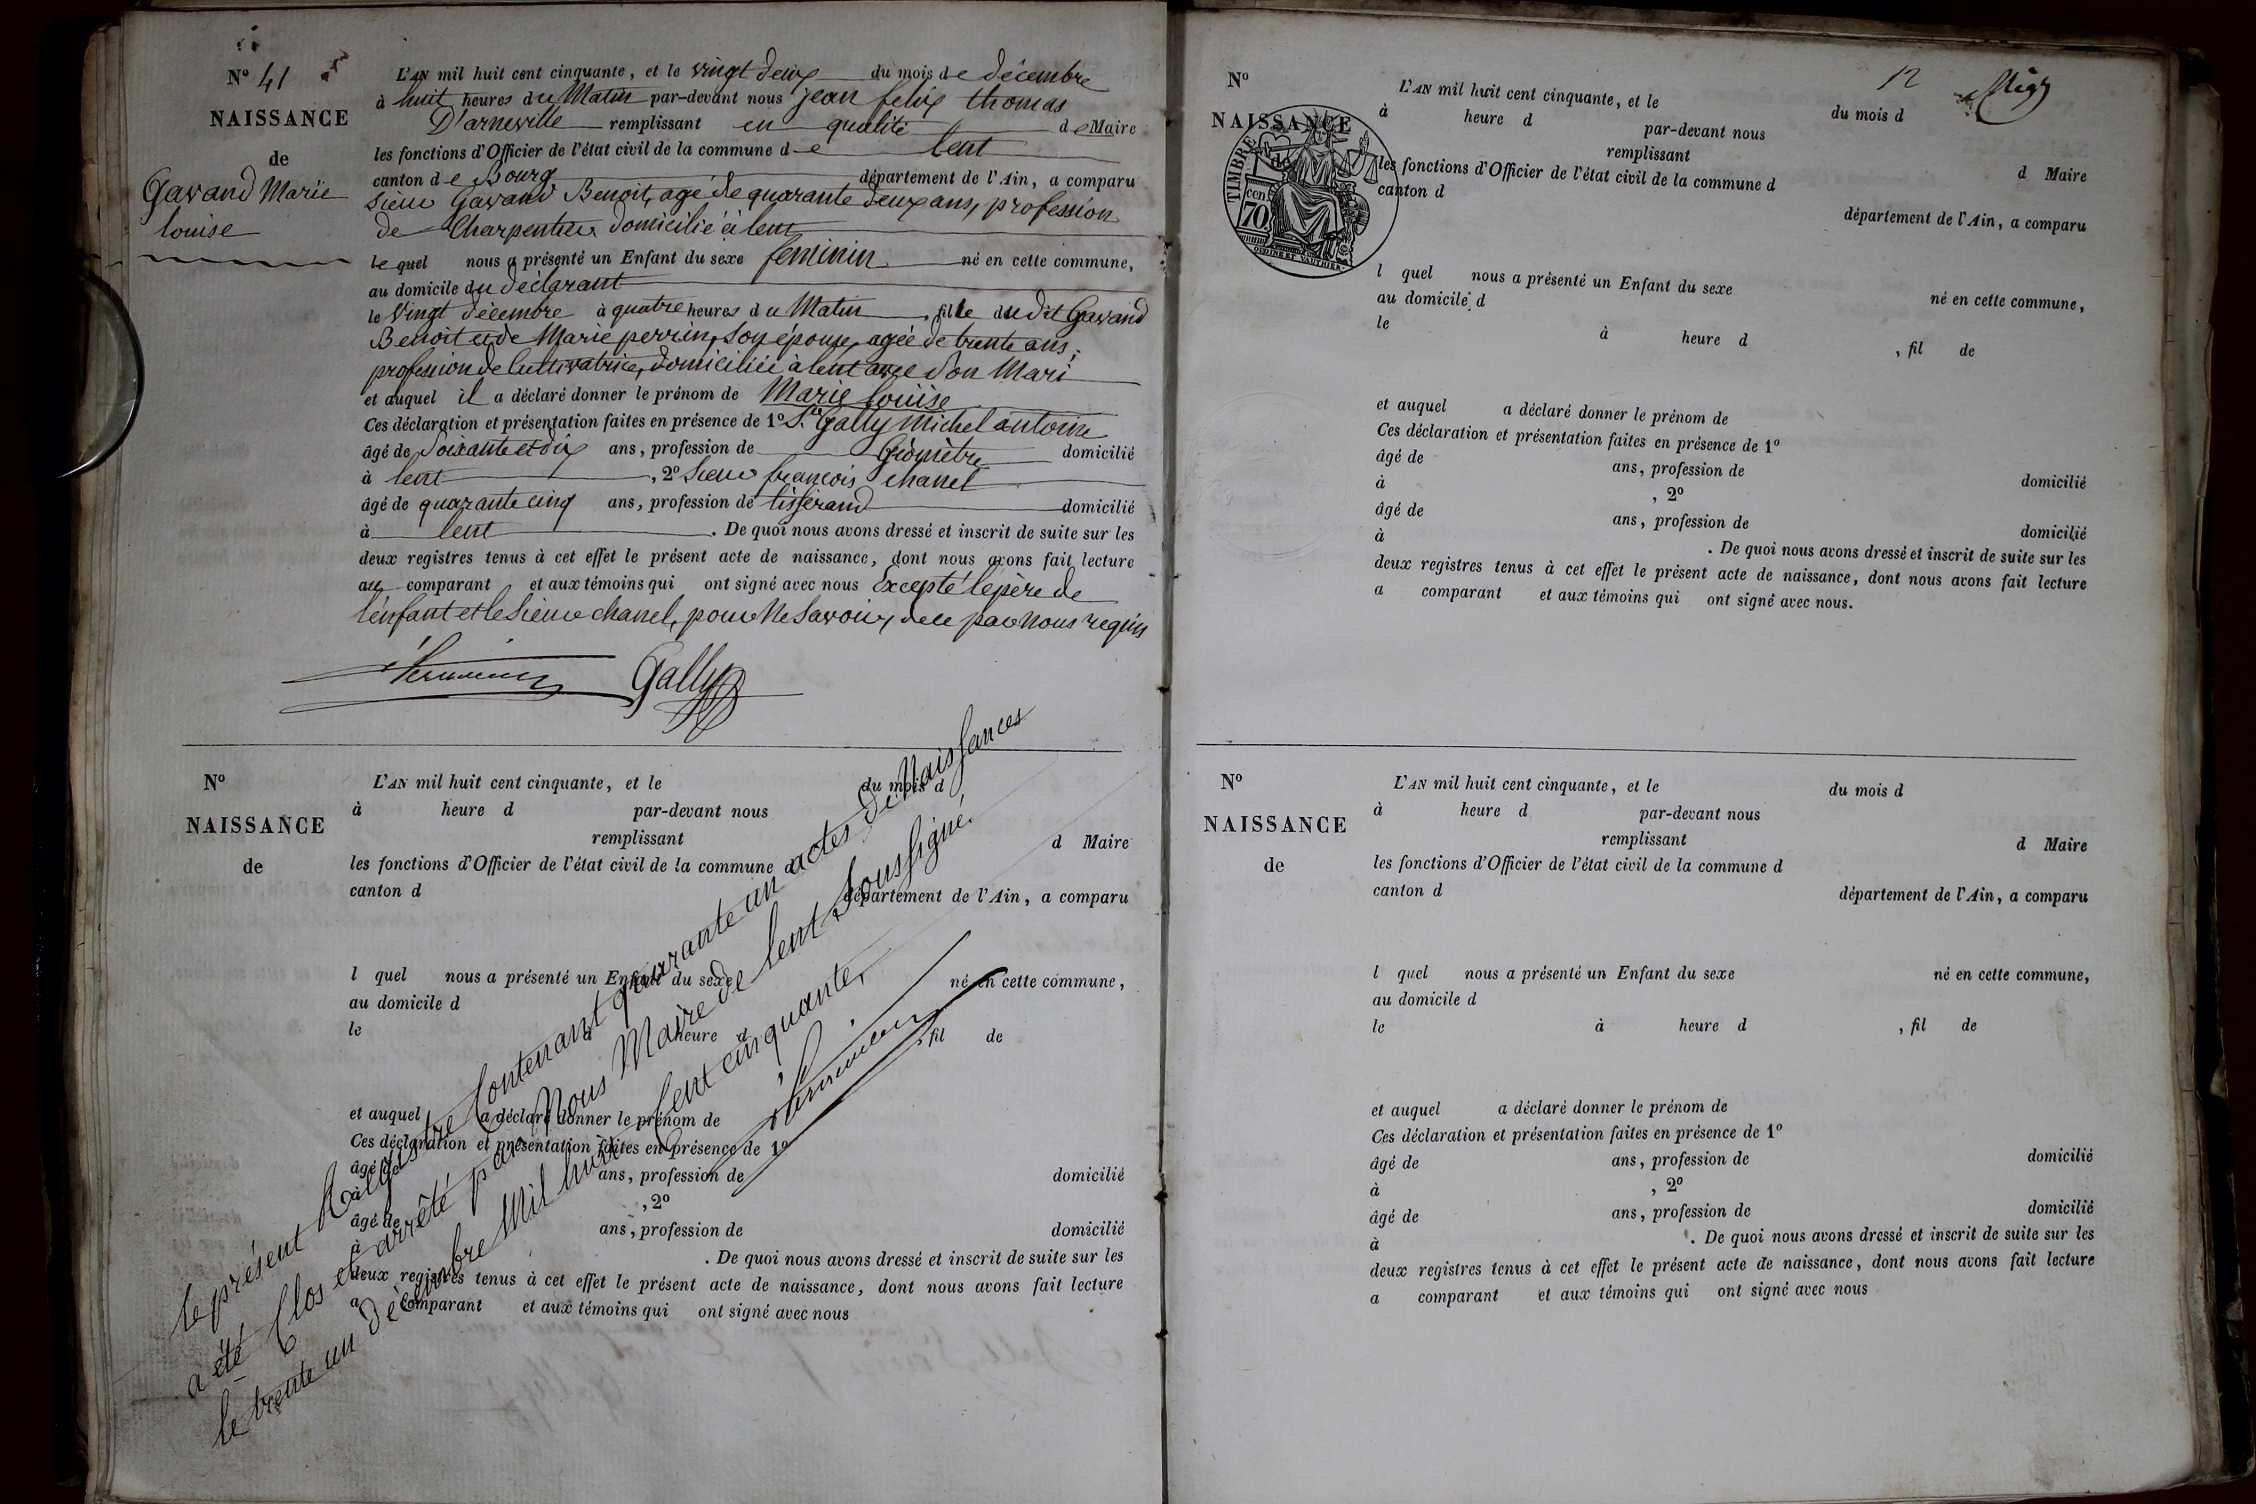 N° 41
NAISSANCE
de
Gavand Marie
louise
L'AN mil huit cent cinquante, et le vingt deux du mois de décembre
à huit heures du Matin par-devant nous jean felix thomas
D'arneville remplissant en qualité de Maire
les fonctions d'Officier de l'état civil de la commune de lent
canton de Bourg département de l'Ain, a comparu
Sieur Gavand Benoit, agé de quarante deux ans, profession
de Charpentier domicilié à lent
lequel nous a présenté un Enfant du sexe feminin né en cette commune,
au domicile du déclarant
le Vingt décembre à quatre heures du Matin, fille du dit Gavand
Benoit et de Marie perrin, son épouse, agée de trente ans,
profession de Cultivatrice, domiciliée à lent avec son Mari
et auquel il a déclaré donner le prénom de Marie louise
Ces déclaration et présentation faites en présence de 1° Sr. Gally Michel antoine
âgé de Soixante et dix ans, profession de Géomètre domicilié
à lent, 2° Sieur françois chanel
âgé de quarante cinq ans, profession de tisserand domicilié
à lent. De quoi nous avons dressé et inscrit de suite sur les
deux registres tenus à cet effet le présent acte de naissance, dont nous avons fait lecture
au comparant et aux témoins qui ont signé avec nous Excepté le père de
l'enfant et le Sieur chanel, pour Ne Savoir, de ce par nous requis
Gally
N°
NAISSANCE
de
L'AN mil huit cent cinquante, et le du mois d
à heure d par-devant nous
remplissant d Maire
les fonctions d'Officier de l'état civil de la commune d
canton d département de l'Ain, a comparu
l quel nous a présenté un Enfant du sexe né en cette commune,
au domicile d
le à heure d, fil de
et auquel a déclaré donner le prénom de
Ces déclaration et présentation faites en présence de 1°
âgé de ans, profession de domicilié
à , 2°
âgé de ans, profession de domicilié
à . De quoi nous avons dressé et inscrit de suite sur les
deux registres tenus à cet effet le présent acte de naissance, dont nous avons fait lecture
a comparant et aux témoins qui ont signé avec nous
le présent Registre Contenant quarante un actes de Naissances
a été Clos et arrêté par Nous Maire de lent Soussigné,
le trente un décembre Mil huit Cent cinquante,
12
N°
NAISSANCE
de
TIMBRE
70
CEN
OUDINÉ ET VAUTHIER
L'AN mil huit cent cinquante, et le du mois d
à heure d par-devant nous
remplissant d Maire
les fonctions d'Officier de l'état civil de la commune d
canton d département de l'Ain, a comparu
l quel nous a présenté un Enfant du sexe né en cette commune,
au domicile d
le à heure d , fil de
et auquel a déclaré donner le prénom de
Ces déclaration et présentation faites en présence de 1°
âgé de ans, profession de domicilié
à , 2°
âgé de ans, profession de domicilié
à . De quoi nous avons dressé et inscrit de suite sur les
deux registres tenus à cet effet le présent acte de naissance, dont nous avons fait lecture
a comparant et aux témoins qui ont signé avec nous.
N°
NAISSANCE
de
L'AN mil huit cent cinquante, et le du mois d
à heure d par-devant nous
remplissant d Maire
les fonctions d'Officier de l'état civil de la commune d
canton d département de l'Ain, a comparu
l quel nous a présenté un Enfant du sexe né en cette commune,
au domicile d
le à heure d , fil de
et auquel a déclaré donner le prénom de
Ces déclaration et présentation faites en présence de 1°
âgé de ans, profession de domicilié
à , 2°
âgé de ans, profession de domicilié
à . De quoi nous avons dressé et inscrit de suite sur les
deux registres tenus à cet effet le présent acte de naissance, dont nous avons fait lecture
a comparant et aux témoins qui ont signé avec nous